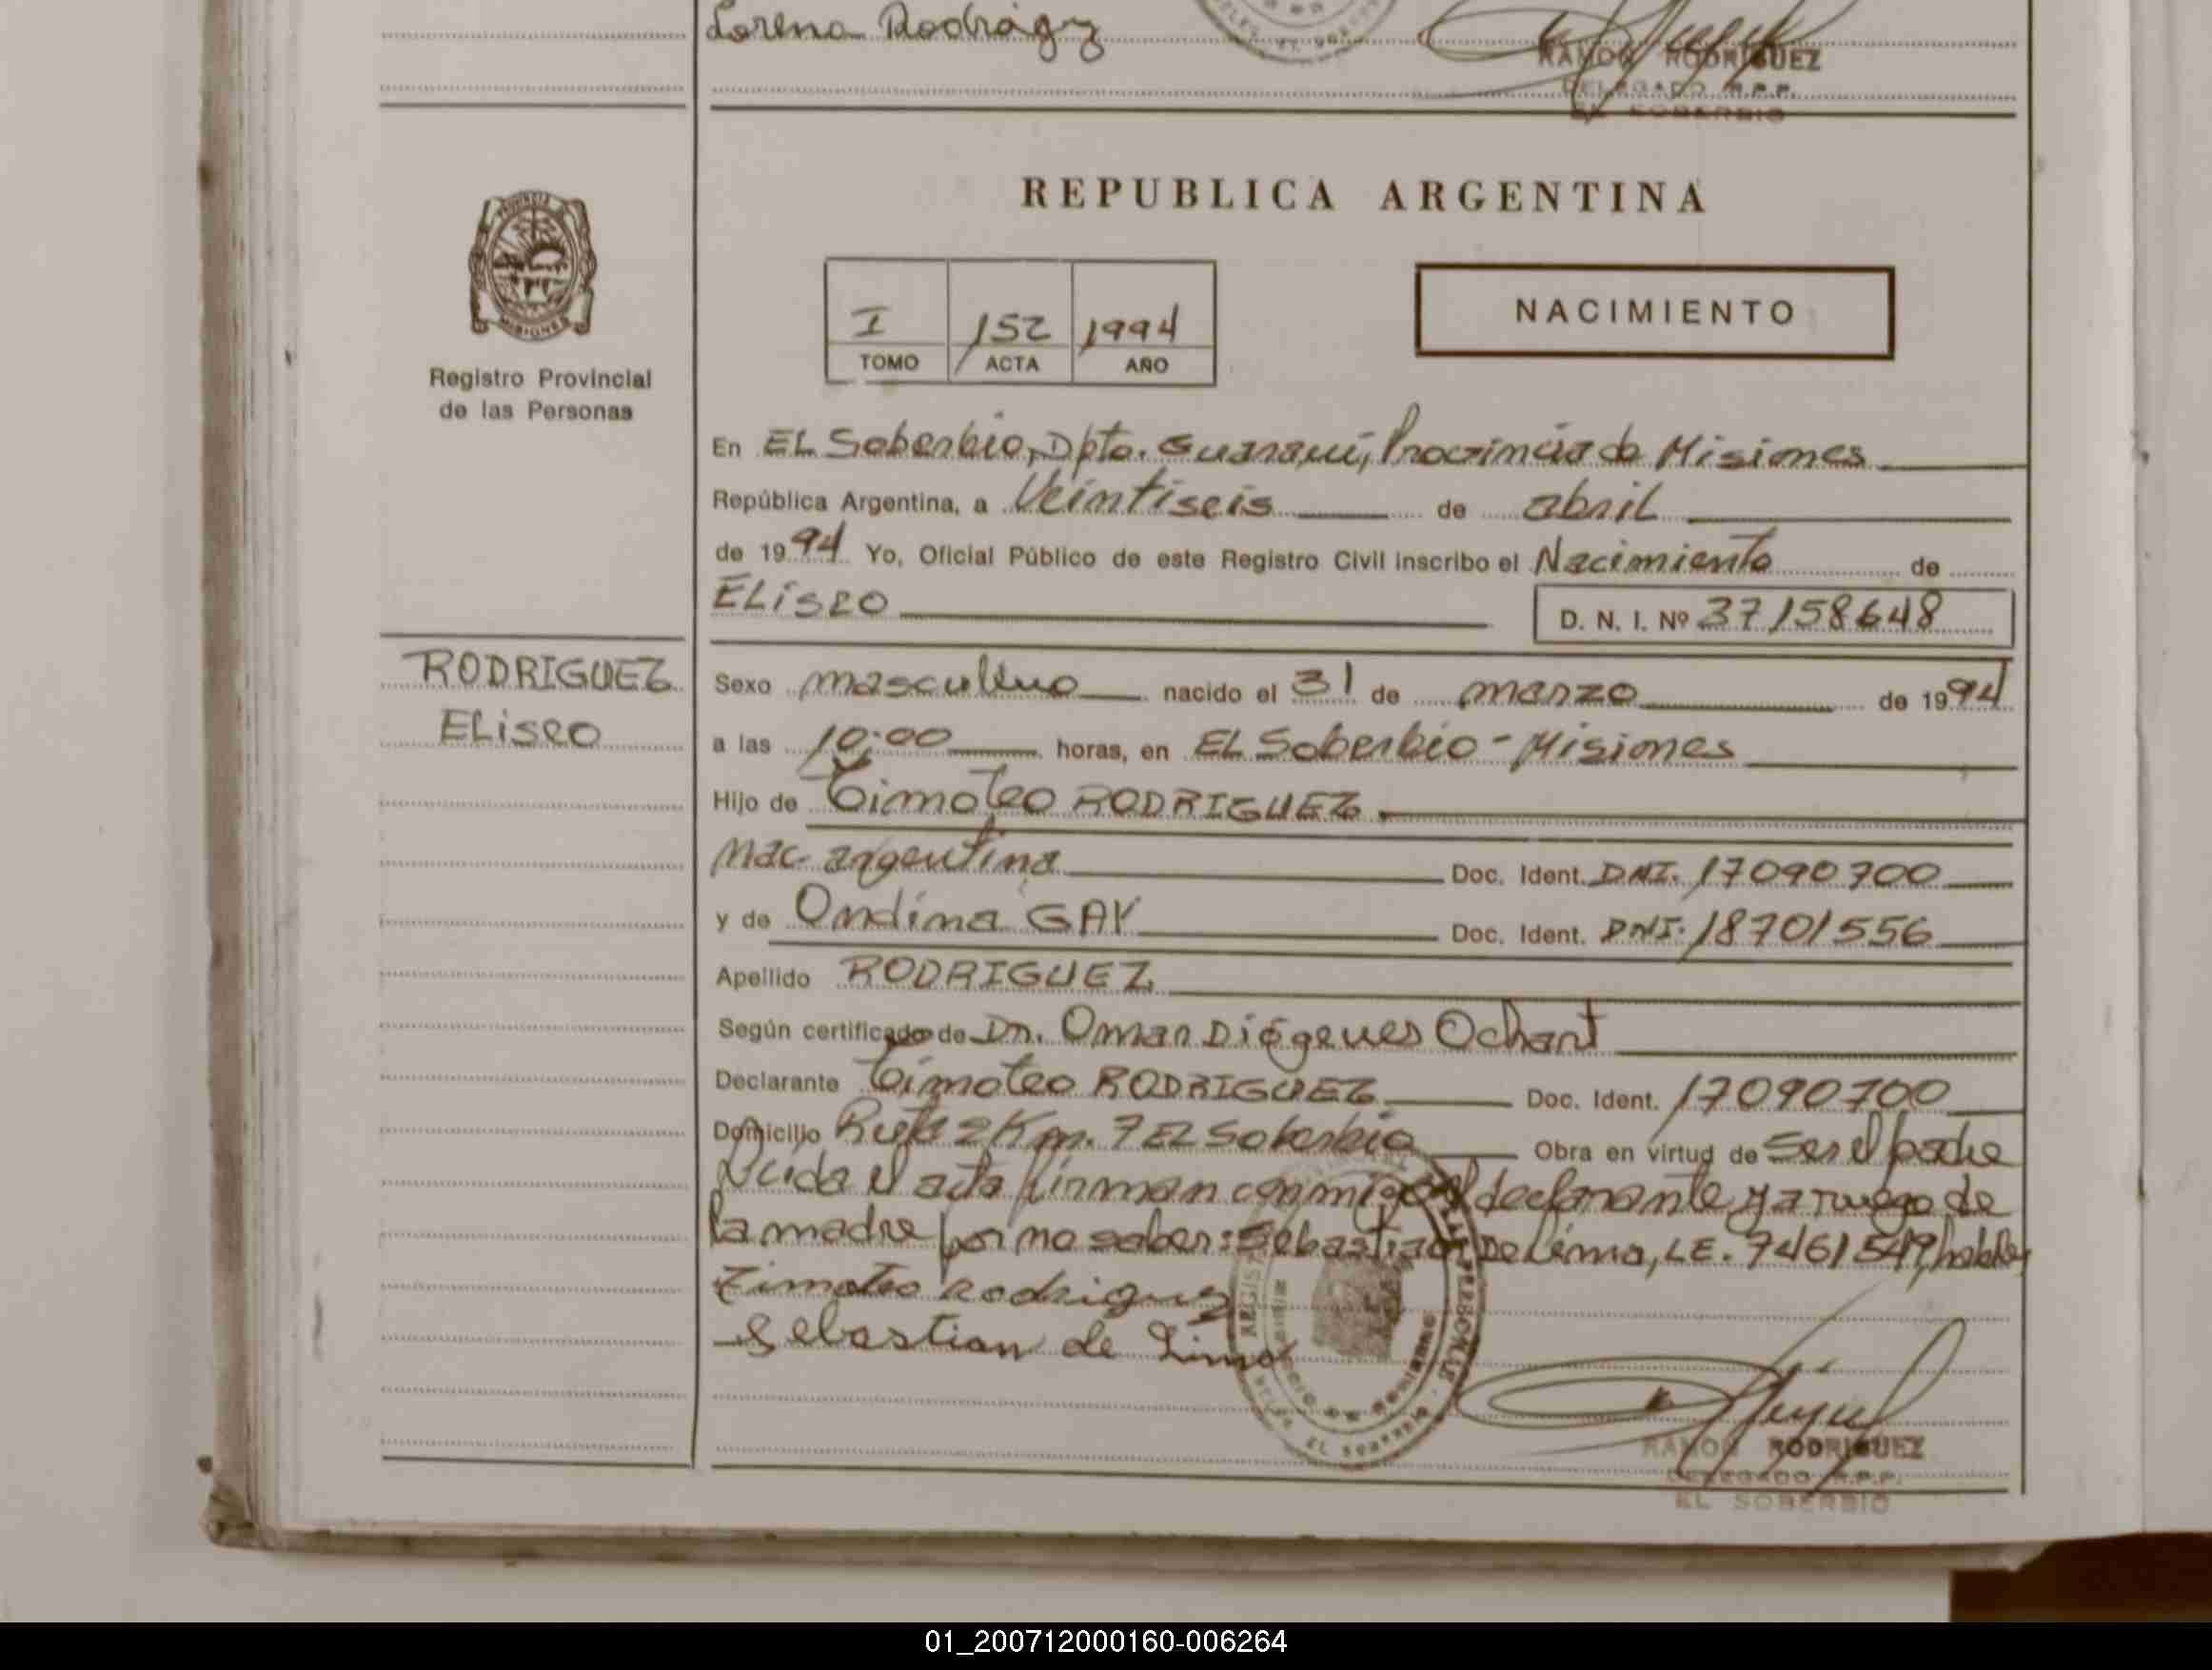 Lorena Rodrigyz
RAMON RODRIGUEZ
DELEGADO R.P.P.
EL SOBERBIO
PROVINCIA
MISIONES
Registro Provincial
de las Personas
REPUBLICA ARGENTINA
I 152 1994
TOMO ACTA AÑO
NACIMIENTO
En EL Soberbio, Dpto. Guaraní, Provincia de Misiones
República Argentina, a Veintiseis de abril
de 1994 Yo, Oficial Público de este Registro Civil inscribo el Nacimiento de
ELiseo
D. N. I. Nº 37158648
RODRIGUEZ
ELiseo
Sexo masculino nacido el 31 de marzo de 1994
a las 10:00 horas, en EL Soberbio - Misiones
Hijo de Timoteo RODRIGUEZ
Nac. argentina Doc. Ident. DNI. 17090700
y de Ondina GAY Doc. Ident. DNI. 18701556
Apellido RODRIGUEZ
Según certificado de Dr. Omar Diógenes Ochant
Declarante Timoteo RODRIGUEZ Doc. Ident. 17090700
Domicilio Ruta 2 Km. 7 EL Soberbio Obra en virtud de ser el padre
Leida el acta firman conmigo el declarante y a ruego de
la madre por no saber: Sebastian De Lima, L.E. 7461549, hábiles
Timoteo Rodriguez
Sebastian de Lima
EL SOBERBIO
RAMON RODRIGUEZ
DELEGADO R.P.P.
EL SOBERBIO
01_200712000160-006264